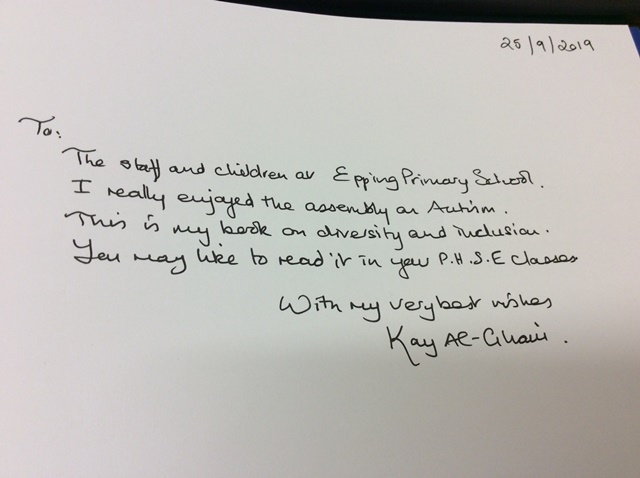 25/9/2019
To:
The staff and children at Epping Primary School.
I really enjoyed the assembly on Autism.
This is my book on diversity and inclusion.
You may like to read it in your P.H.S.E classes
With my very best wishes
Kay Al-Ghani.